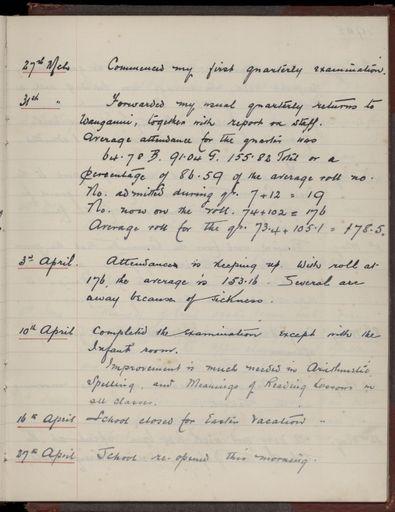 27th Mch Commenced my first quarterly examination.
31st " Forwarded my usual quarterly returns to
Wanganui, together with report on staff.
Average attendance for the quarter was
64.78 B. 91.04 G. 155.82 Total or a
percentage of 86.59 of the average roll no.
No. admitted during qr. 7+12 = 19
No. now on the roll. 74+102 = 176
Average roll for the qr. 73.4+105.1 = 178.5.
3rd April. Attendance is keeping up. With roll at
176, the average is 153.16. Several are
away because of sickness.
10th April Completed the examination except with the
Infant room.
Improvement is much needed in Arithmetic,
Spelling, and Meanings of Reading Lessons in
all classes.
16th April School closed for Easter Vacation "
27th April School re-opened this morning.